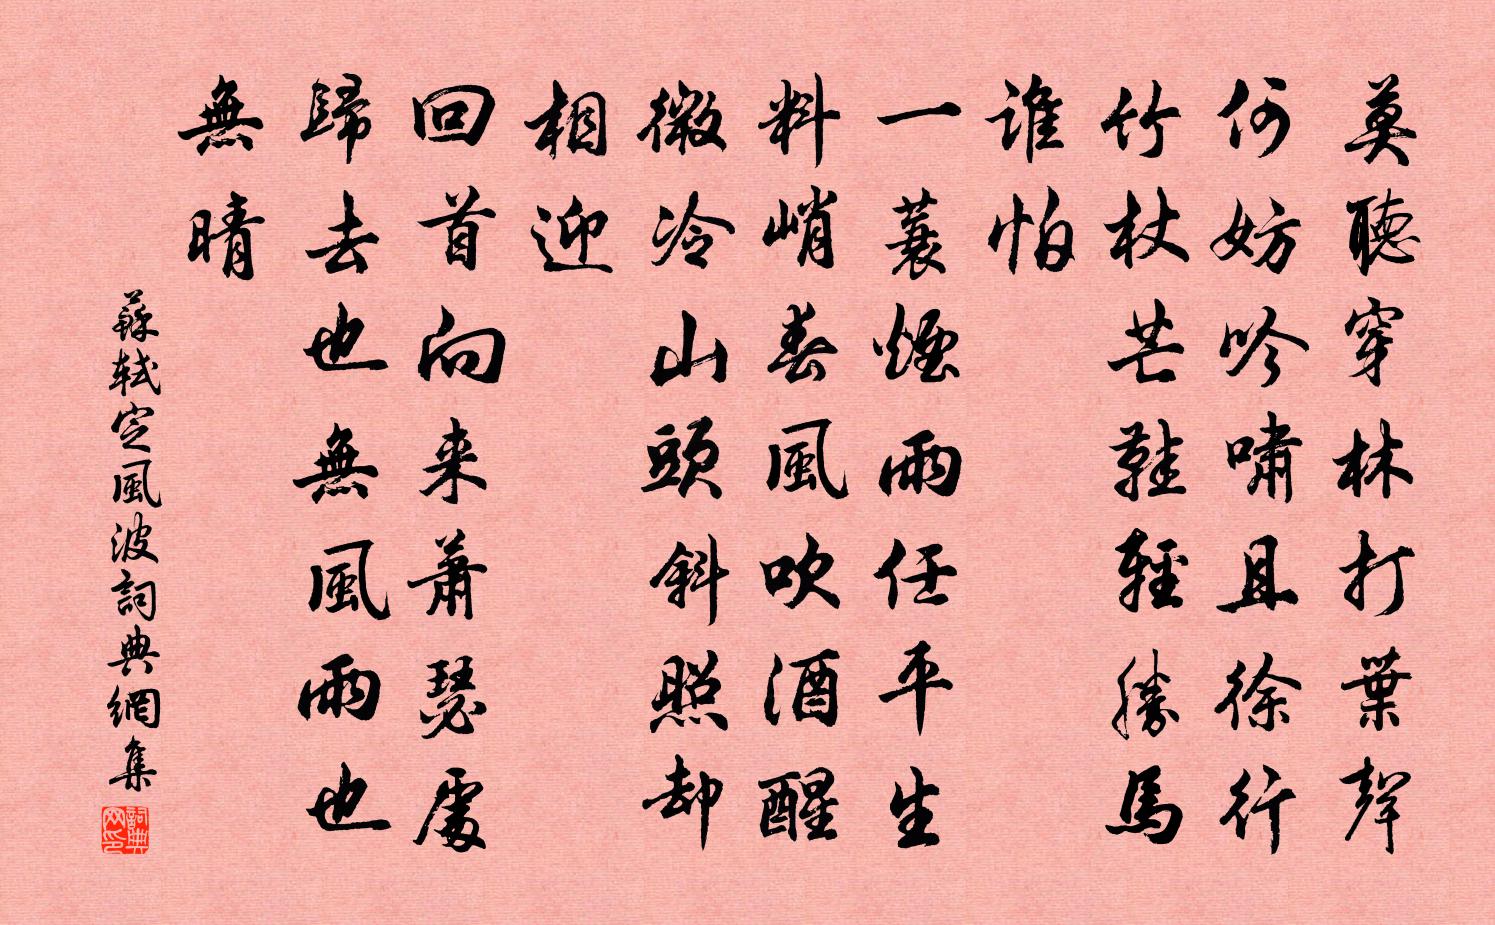 莫聽穿林打葉聲
何妨吟嘯且徐行
竹杖芒鞋輕勝馬
誰怕
一蓑煙雨任平生
料峭春風吹酒醒
微冷山頭斜照却
相迎
回首向来蕭瑟處
歸去也無風雨也
無晴
蘇軾定風波詞典網集
詞典
网印